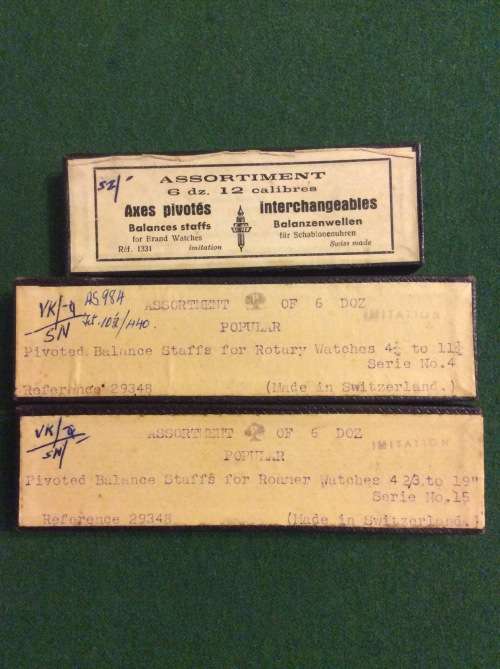 ASSORTIMENT
6 dz. 12 calibres
Axes pivotés interchangeables
Balances staffs Balanzenwellen
for Brand Watches für Schablonenuhren
Réf. 1331 imitation Swiss made
VK/-Q AS984
SN
ASSORTMENT OF 6 DOZ
IMITATION
POPULAR
Pivoted Balance Staffs for Rotary Watches 4½ to 11½
Serie No.4
Reference 29348 (Made in Switzerland.)
VK/-Q
SN/
ASSORTMENT OF 6 DOZ
IMITATION
POPULAR
Pivoted Balance Staffs for Roamer Watches 4 2/3, to 19"
Serie No.15
Reference 29348 (Made in Switzerland.